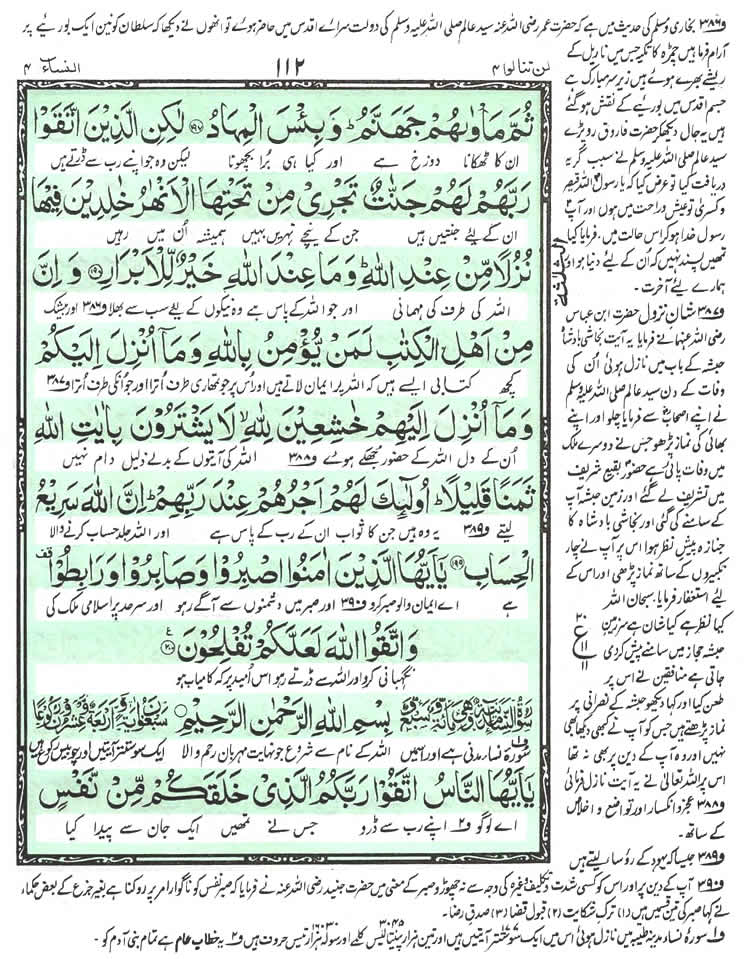 ف۳۸۶ بخاری و مسلم کی حدیث میں ہے کہ حضرت عمر رضی اللہ عنہ سید عالم صلی اللہ علیہ وسلم کی دولت سرائے اقدس میں حاضر ہوئے تو انھوں نے دیکھا کہ سلطان کونین ایک بوریے پر
آرام فرما ہیں چمڑہ کا تکیہ جس میں ناریل کے
ریشے بھرے ہوئے ہیں زیر سر مبارک ہے
جسم اقدس میں بوریے کے نقش ہوگئے
ہیں یہ حال دیکھکر حضرت فاروق رو پڑے
سید عالم صلی اللہ علیہ وسلم نے سبب گریہ
دریافت کیا تو عرض کیا کہ یا رسول اللہ قیصر
و کسریٰ تو عیش و راحت میں ہوں اور آپ
رسول خدا ہو کر اس حالت میں۔ فرمایا کیا
تمھیں پسند نہیں کہ اُن کے لئے دنیا ہو اور
ہمارے لئے آخرت۔
ف۳۸۷ شان نزول حضرت ابن عباس
رضی اللہ عنہما نے فرمایا یہ آیت نجاشی بادشاہ
حبشہ کے باب میں نازل ہوئی اُن کی
وفات کے دن سید عالم صلی اللہ علیہ وسلم
نے اپنے اصحاب سے فرمایا چلو اور اپنے
بھائی کی نماز پڑھو جس نے دوسرے ملک
میں وفات پائی ہے حضور بقیع شریف
میں تشریف لے گئے اور زمین حبشہ آپ
کے سامنے کی گئی اور نجاشی بادشاہ کا
جنازہ پیش نظر ہوا اس پر آپ نے چار
تکبیروں کے ساتھ نماز پڑھی اور اس کے
لئے استغفار فرمایا۔ سبحان اللہ
کیا نظر ہے کیا شان ہے سرزمین
حبشہ حجاز میں سامنے پیش کردی
جاتی ہے منافقین نے اس پر
طعن کیا اور کہا دیکھو حبشہ کے نصرانی پر
نماز پڑھتے ہیں جس کو آپ نے کبھی دیکھا بھی
نہیں اور وہ آپ کے دین پر بھی نہ تھا
اس پر اللہ تعالیٰ نے یہ آیت نازل فرمائی
ف۳۸۸ عجز و انکسار اور تواضع و اخلاص
کے ساتھ۔
ف۳۸۹ جیسا کہ یہود کے رؤسا لیتے ہیں
لن تنالوا ۴ ۱۱۲ النساء ۴
ثُمَّ مَاْوٰىهُمْ جَهَنَّمُ ؕ وَ بِئْسَ الْمِهَادُ ﴿۱۹۷﴾ لٰكِنِ الَّذِيْنَ اتَّقَوْا
ان کا ٹھکانا دوزخ ہے اور کیا ہی بُرا بچھونا لیکن وہ جو اپنے رب سے ڈرتے ہیں
رَبَّهُمْ لَهُمْ جَنّٰتٌ تَجْرِيْ مِنْ تَحْتِهَا الْاَنْهٰرُ خٰلِدِيْنَ فِيْهَا
ان کے لئے جنتیں ہیں جن کے نیچے نہریں بہیں ہمیشہ اُن میں رہیں
نُزُلًا مِّنْ عِنْدِ اللّٰهِ ؕ وَ مَا عِنْدَ اللّٰهِ خَيْرٌ لِّلْاَبْرَارِ ﴿۱۹۸﴾ وَ اِنَّ
اللہ کی طرف کی مہمانی اور جو اللہ کے پاس ہے وہ نیکوں کے لئے سب سے بھلا ف۳۸۶ اور بیشک
مِنْ اَهْلِ الْكِتٰبِ لَمَنْ يُّؤْمِنُ بِاللّٰهِ وَ مَاۤ اُنْزِلَ اِلَيْكُمْ
کچھ کتابی ایسے ہیں کہ اللہ پر ایمان لاتے ہیں اور اُس پر جو تمھاری طرف اُترا اور جو اُنکی طرف اُترا ف۳۸۷
وَ مَاۤ اُنْزِلَ اِلَيْهِمْ خٰشِعِيْنَ لِلّٰهِ ۙ لَا يَشْتَرُوْنَ بِاٰيٰتِ اللّٰهِ
اُن کے دل اللہ کے حضور جھکے ہوئے ف۳۸۸ اللہ کی آیتوں کے بدلے ذلیل دام نہیں
ثَمَنًا قَلِيْلًا ؕ اُولٰٓئِكَ لَهُمْ اَجْرُهُمْ عِنْدَ رَبِّهِمْ ؕ اِنَّ اللّٰهَ سَرِيْعُ
لیتے ف۳۸۹ یہ وہ ہیں جن کا ثواب ان کے رب کے پاس ہے اور اللہ جلد حساب کرنے والا
الْحِسَابِ ﴿۱۹۹﴾ يٰۤاَيُّهَا الَّذِيْنَ اٰمَنُوا اصْبِرُوْا وَ صَابِرُوْا وَ رَابِطُوْا
ہے اے ایمان والو صبر کرو ف۳۹۰ اور صبر میں دشمنوں سے آگے رہو اور سرحد پر اسلامی ملک کی
وَ اتَّقُوا اللّٰهَ لَعَلَّكُمْ تُفْلِحُوْنَ ﴿۲۰۰﴾
نگہبانی کرو اور اللہ سے ڈرتے رہو اس اُمید پر کہ کامیاب ہو
بِسْمِ اللّٰهِ الرَّحْمٰنِ الرَّحِيْمِ
سورۂ نساء مدنی ہے اور اس میں اللہ کے نام سے شروع جو نہایت مہربان رحم والا ایک سو ستتر آیتیں اور چوبیس رکوع ہیں
يٰۤاَيُّهَا النَّاسُ اتَّقُوْا رَبَّكُمُ الَّذِيْ خَلَقَكُمْ مِّنْ نَّفْسٍ
اے لوگو ف۲ اپنے رب سے ڈرو جس نے تمھیں ایک جان سے پیدا کیا
ف۳۹۰ اپنے دین پر اور اس کو کسی شدت تکلیف وغیرہ کی وجہ سے نہ چھوڑو صبر کے معنی میں حضرت جنید رضی اللہ عنہ نے فرمایا کہ صبر نفس کو ناگوار امر پر روکنا ہے بغیر جزع کے بعض حکماء
نے کہا صبر کی تین قسمیں ہیں (۱) ترک شکایت (۲) قبول قضا (۳) صدق رضا۔
ف۱ سورۂ نساء مدینہ طیبہ میں نازل ہوئی اس میں ایک سو ستتر آیتیں ہیں اور تین ہزار پینتالیس کلمے اور سولہ ہزار تیس حروف ہیں ف۲ یہ خطاب عام ہے تمام بنی آدم کو۔